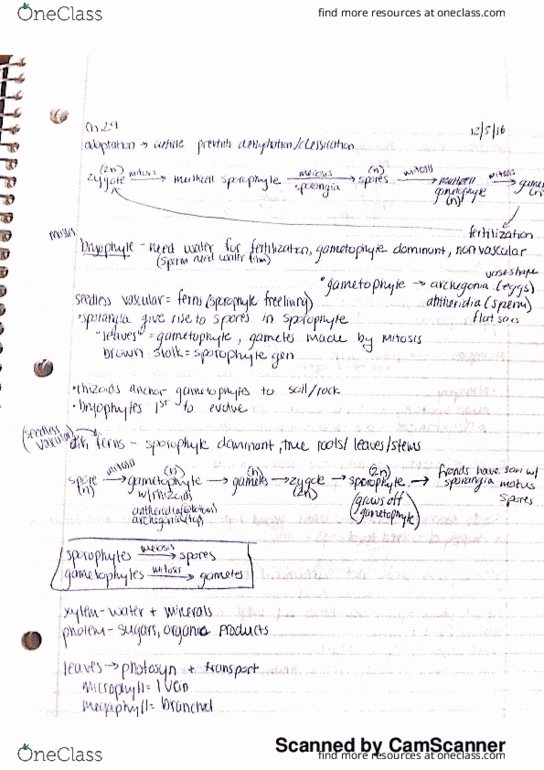 OneClass
find more resources at oneclass.com
Ch 29
12/5/16
adaptation → cuticle prevents
(2n) zygote mitosis→ multicell sporophyte meiosis→ sporangia (n) spores mitosis→ multicell gametophyte (n) mitosis→
fertilization
bryophyte - need water for fertilization, gametophyte dominant, non vascular
(sperm need water film)
vase shape
• gametophyte → archegonia (eggs)
antheridia (sperm)
flat sacs
seedless vascular = ferns (sporophyte freeliving)
• sporangia give rise to spores in sporophyte
"leaves" = gametophyte, gametes made by mitosis
brown stalk = sporophyte gen
• rhizoids anchor gametophytes to soil/rock
• bryophytes 1st to evolve
(seedless vascular)
ferns - sporophyte dominant, true roots/leaves/stems
spore (n) mitosis→ gametophyte (n) → gametes (n) → zygote (2n) → sporophyte (2n) → fronds have sori w/
w/rhizoids
sporangia makes
antheridia
(grows off gametophyte)
spores
archegonia
sporophytes meiosis→ spores
gametophytes mitosis→ gametes
xylem - water + minerals
phloem - sugars, organic products
leaves → photosyn + transport
microphyll = 1 vein
megaphyll = branched
Scanned by CamScanner
OneClass
find more resources at oneclass.com